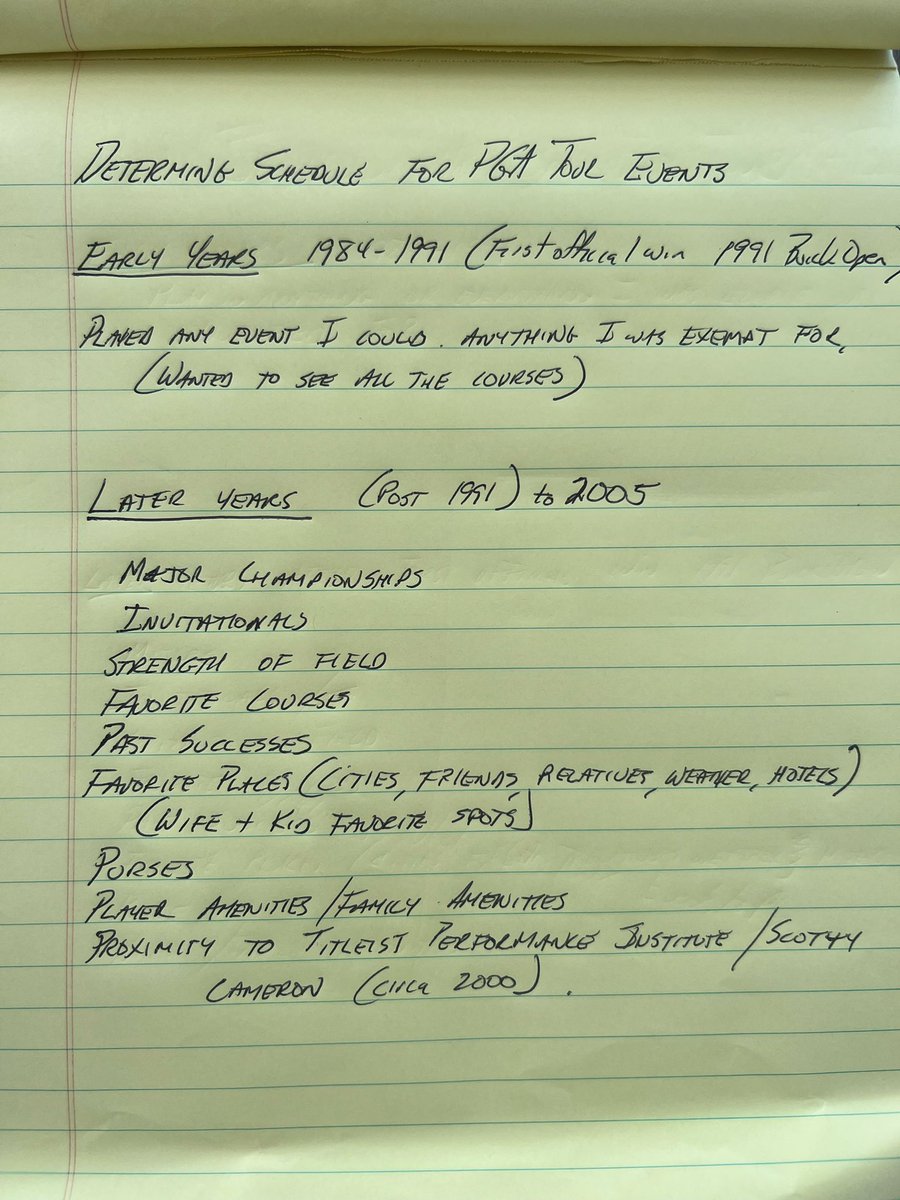 DETERMING SCHEDULE FOR PGA TOUR EVENTS
EARLY YEARS 1984-1991 (First official win 1991 Buick Open)
PLAYED ANY EVENT I COULD. ANYTHING I WAS EXEMPT FOR.
(WANTED TO SEE ALL THE COURSES)
LATER YEARS (POST 1991) to 2005
MAJOR CHAMPIONSHIPS
INVITATIONALS
STRENGTH OF FIELD
FAVORITE COURSES
PAST SUCCESSES
FAVORITE PLACES (CITIES, FRIENDS, RELATIVES, WEATHER, HOTELS)
(WIFE + KID FAVORITE SPOTS)
PURSES
PLAYER AMENITIES/FAMILY AMENITIES
PROXIMITY TO TITLEIST PERFORMANCE INSTITUTE/SCOTTY
CAMERON (circa 2000).